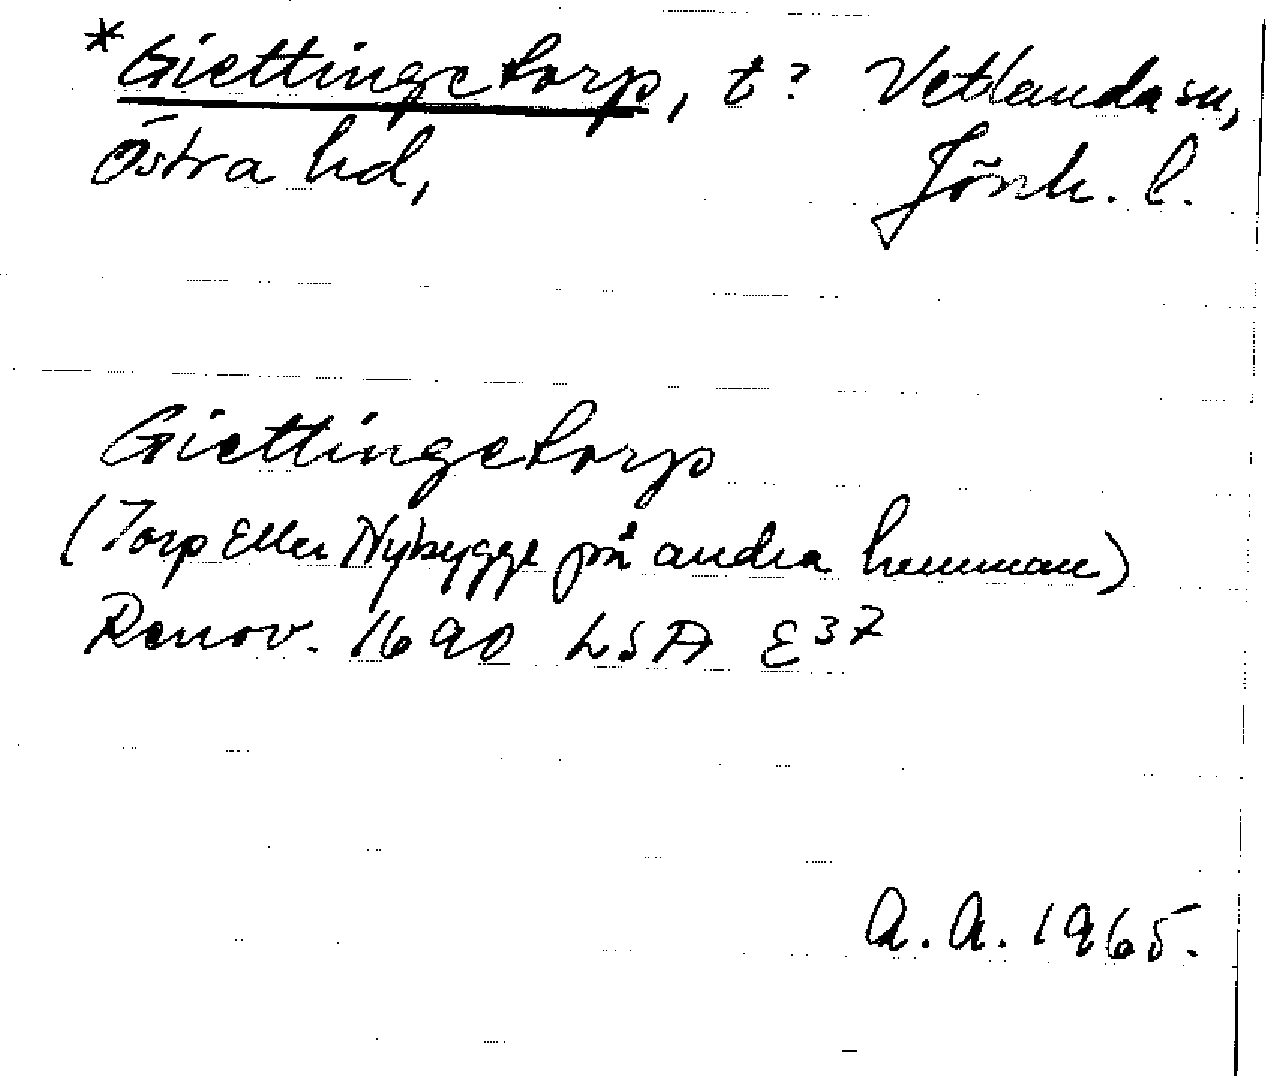 *Giettingetorp, t? Vetlanda sn,
Östra hd, Jönk. l.
Giettingetorp
(Torp Eller Nybygge på andra hemman)
Renov. 1690 LSA E37
A. A. 1965.